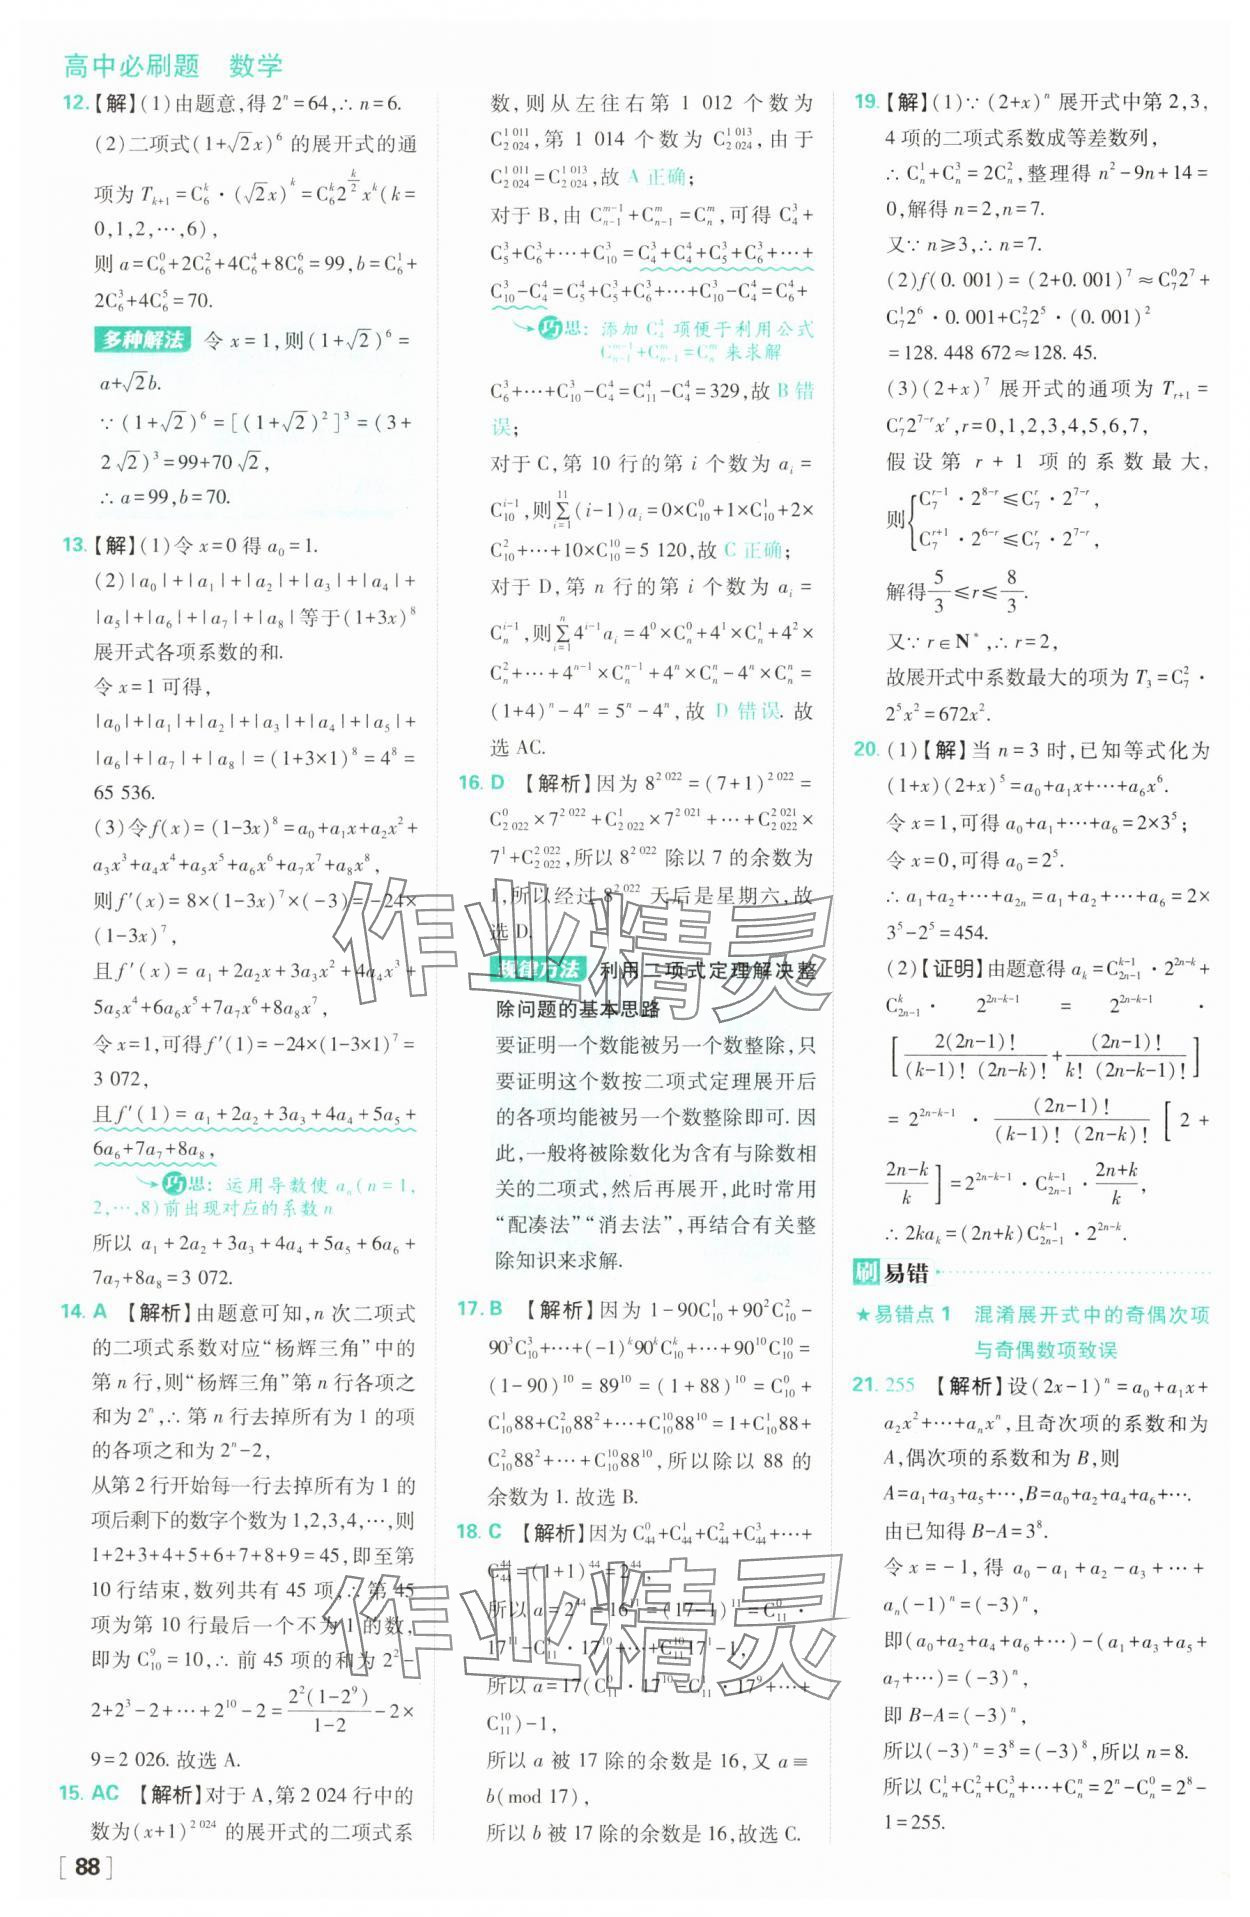 高中必刷题 数学
12.【解】(1)由题意,得2ⁿ=64,∴n=6.
(2)二项式(1+√2x)⁶的展开式的通
项为T_{k+1}=C_6^k·(√2x)^k=C_6^k2^{k/2}x^k(k=
0,1,2,…,6),
则a=C_6^0+2C_6^2+4C_6^4+8C_6^6=99,b=C_6^1+
2C_6^3+4C_6^5=70.
多种解法 令x=1,则(1+√2)⁶=
a+√2b.
∵(1+√2)⁶=[(1+√2)²]³=(3+
2√2)³=99+70√2,
∴a=99,b=70.
13.【解】(1)令x=0得a_0=1.
(2)|a_0|+|a_1|+|a_2|+|a_3|+|a_4|+
|a_5|+|a_6|+|a_7|+|a_8|等于(1+3x)⁸
展开式各项系数的和.
令x=1可得,
|a_0|+|a_1|+|a_2|+|a_3|+|a_4|+|a_5|+
|a_6|+|a_7|+|a_8|=(1+3×1)⁸=4⁸=
65 536.
(3)令f(x)=(1-3x)⁸=a_0+a_1x+a_2x²+
a_3x³+a_4x⁴+a_5x⁵+a_6x⁶+a_7x⁷+a_8x⁸,
则f′(x)=8×(1-3x)⁷×(-3)=-24×
(1-3x)⁷,
且f′(x)=a_1+2a_2x+3a_3x²+4a_4x³+
5a_5x⁴+6a_6x⁵+7a_7x⁶+8a_8x⁷,
令x=1,可得f′(1)=-24×(1-3×1)⁷=
3 072,
且f′(1)=a_1+2a_2+3a_3+4a_4+5a_5+
6a_6+7a_7+8a_8,
巧思:运用导数使a_n(n=1,
2,…,8)前出现对应的系数n
所以a_1+2a_2+3a_3+4a_4+5a_5+6a_6+
7a_7+8a_8=3 072.
14. A 【解析】由题意可知,n次二项式
的二项式系数对应“杨辉三角”中的
第n行,则“杨辉三角”第n行各项之
和为2ⁿ,∴第n行去掉所有为1的项
的各项之和为2ⁿ-2,
从第2行开始每一行去掉所有为1的
项后剩下的数字个数为1,2,3,4,…,则
1+2+3+4+5+6+7+8+9=45,即至第
10行结束,数列共有45项,∴第45
项为第10行最后一个不为1的数,
即为C_{10}^9=10,∴前45项的和为2²-
2+2³-2+…+2¹⁰-2=\frac{2²(1-2⁹)}{1-2}-2×
9=2 026.故选A.
15. AC 【解析】对于A,第2 024行中的
数为(x+1)^{2 024}的展开式的二项式系
[88]
数,则从左往右第1 012个数为
C_{2 024}^{1 011},第1 014个数为C_{2 024}^{1 013},由于
C_{2 024}^{1 011}=C_{2 024}^{1 013},故A正确;
对于B,由C_{n-1}^{m-1}+C_{n-1}^m=C_n^m,可得C_4^3+
C_5^3+C_6^3+…+C_{10}^3=C_4^3+C_4^4+C_5^3+C_6^3+…+
C_{10}^3-C_4^4=C_5^4+C_5^3+C_6^3+…+C_{10}^3-C_4^4=C_6^4+
巧思:添加C_4^4项便于利用公式
C_{n-1}^{m-1}+C_{n-1}^m=C_n^m来求解
C_6^3+…+C_{10}^3-C_4^4=C_{11}^4-C_4^4=329,故B错
误;
对于C,第10行的第i个数为a_i=
C_{10}^{i-1},则∑_{i=1}^{11}(i-1)a_i=0×C_{10}^0+1×C_{10}^1+2×
C_{10}^2+…+10×C_{10}^{10}=5 120,故C正确;
对于D,第n行的第i个数为a_i=
C_n^{i-1},则∑_{i=1}^n4^{i-1}a_i=4⁰×C_n^0+4¹×C_n^1+4²×
C_n^2+…+4^{n-1}×C_n^{n-1}+4ⁿ×C_n^n-4ⁿ×C_n^n=
(1+4)ⁿ-4ⁿ=5ⁿ-4ⁿ,故D错误.故
选AC.
16. D 【解析】因为8^{2 022}=(7+1)^{2 022}=
C_{2 022}^0×7^{2 022}+C_{2 022}^1×7^{2 021}+…+C_{2 022}^{2 021}×
7¹+C_{2 022}^{2 022},所以8^{2 022}除以7的余数为
1,所以经过8^{2 022}天后是星期六,故
选D.
规律方法 利用二项式定理解决整
除问题的基本思路
要证明一个数能被另一个数整除,只
要证明这个数按二项式定理展开后
的各项均能被另一个数整除即可.因
此,一般将被除数化为含有与除数相
关的二项式,然后再展开,此时常用
“配凑法”“消去法”,再结合有关整
除知识来求解.
17. B 【解析】因为1-90C_{10}^1+90²C_{10}^2-
90³C_{10}^3+…+(-1)^k90^kC_{10}^k+…+90¹⁰C_{10}^{10}=
(1-90)¹⁰=89¹⁰=(1+88)¹⁰=C_{10}^0+
C_{10}^188+C_{10}^288²+…+C_{10}^{10}88¹⁰=1+C_{10}^188+
C_{10}^288²+…+C_{10}^{10}88¹⁰,所以除以88的
余数为1.故选B.
18. C 【解析】因为C_{44}^0+C_{44}^1+C_{44}^2+C_{44}^3+…+
C_{44}^{44}=(1+1)⁴⁴=2⁴⁴,
所以a=2⁴⁴=16¹¹=(17-1)¹¹=C_{11}^0·
17¹¹-C_{11}^1·17¹⁰+…+C_{11}^{10}17¹-1,
所以a=17(C_{11}^0·17¹⁰-C_{11}^1·17⁹+…+
C_{11}^{10})-1,
所以a被17除的余数是16,又a≡
b(mod 17),
所以b被17除的余数是16,故选C.
19.【解】(1)∵(2+x)ⁿ展开式中第2,3,
4项的二项式系数成等差数列,
∴C_n^1+C_n^3=2C_n^2,整理得n²-9n+14=
0,解得n=2,n=7.
又∵n≥3,∴n=7.
(2)f(0.001)=(2+0.001)⁷≈C_7^02⁷+
C_7^12⁶·0.001+C_7^22⁵·(0.001)²
=128.448 672≈128.45.
(3)(2+x)⁷展开式的通项为T_{r+1}=
C_7^r2^{7-r}x^r,r=0,1,2,3,4,5,6,7,
假设第r+1项的系数最大,
则{C_7^{r-1}·2^{8-r}≤C_7^r·2^{7-r},
C_7^{r+1}·2^{6-r}≤C_7^r·2^{7-r},
解得5/3≤r≤8/3.
又∵r∈N*,∴r=2,
故展开式中系数最大的项为T_3=C_7^2·
2⁵x²=672x².
20.(1)【解】当n=3时,已知等式化为
(1+x)(2+x)⁵=a_0+a_1x+…+a_6x⁶.
令x=1,可得a_0+a_1+…+a_6=2×3⁵;
令x=0,可得a_0=2⁵.
∴a_1+a_2+…+a_{2n}=a_1+a_2+…+a_6=2×
3⁵-2⁵=454.
(2)【证明】由题意得a_k=C_{2n-1}^{k-1}·2^{2n-k}+
C_{2n-1}^k·2^{2n-k-1}=2^{2n-k-1}·
[\frac{2(2n-1)!}{(k-1)!(2n-k)!}+\frac{(2n-1)!}{k!(2n-k-1)!}]
=2^{2n-k-1}·\frac{(2n-1)!}{(k-1)!(2n-k)!}[2+
\frac{2n-k}{k}]=2^{2n-k-1}·C_{2n-1}^{k-1}·\frac{2n+k}{k},
∴2ka_k=(2n+k)C_{2n-1}^{k-1}·2^{2n-k}.
刷易错
★易错点1 混淆展开式中的奇偶次项
与奇偶数项致误
21. 255 【解析】设(2x-1)ⁿ=a_0+a_1x+
a_2x²+…+a_nxⁿ,且奇次项的系数和为
A,偶次项的系数和为B,则
A=a_1+a_3+a_5+…,B=a_0+a_2+a_4+a_6+….
由已知得B-A=3⁸.
令x=-1,得a_0-a_1+a_2-a_3+…+
a_n(-1)ⁿ=(-3)ⁿ,
即(a_0+a_2+a_4+a_6+…)-(a_1+a_3+a_5+
a_7+…)=(-3)ⁿ,
即B-A=(-3)ⁿ,
所以(-3)ⁿ=3⁸=(-3)⁸,所以n=8.
所以C_n^1+C_n^2+C_n^3+…+C_n^n=2ⁿ-C_n^0=2⁸-
1=255.
作业精灵
作业精灵